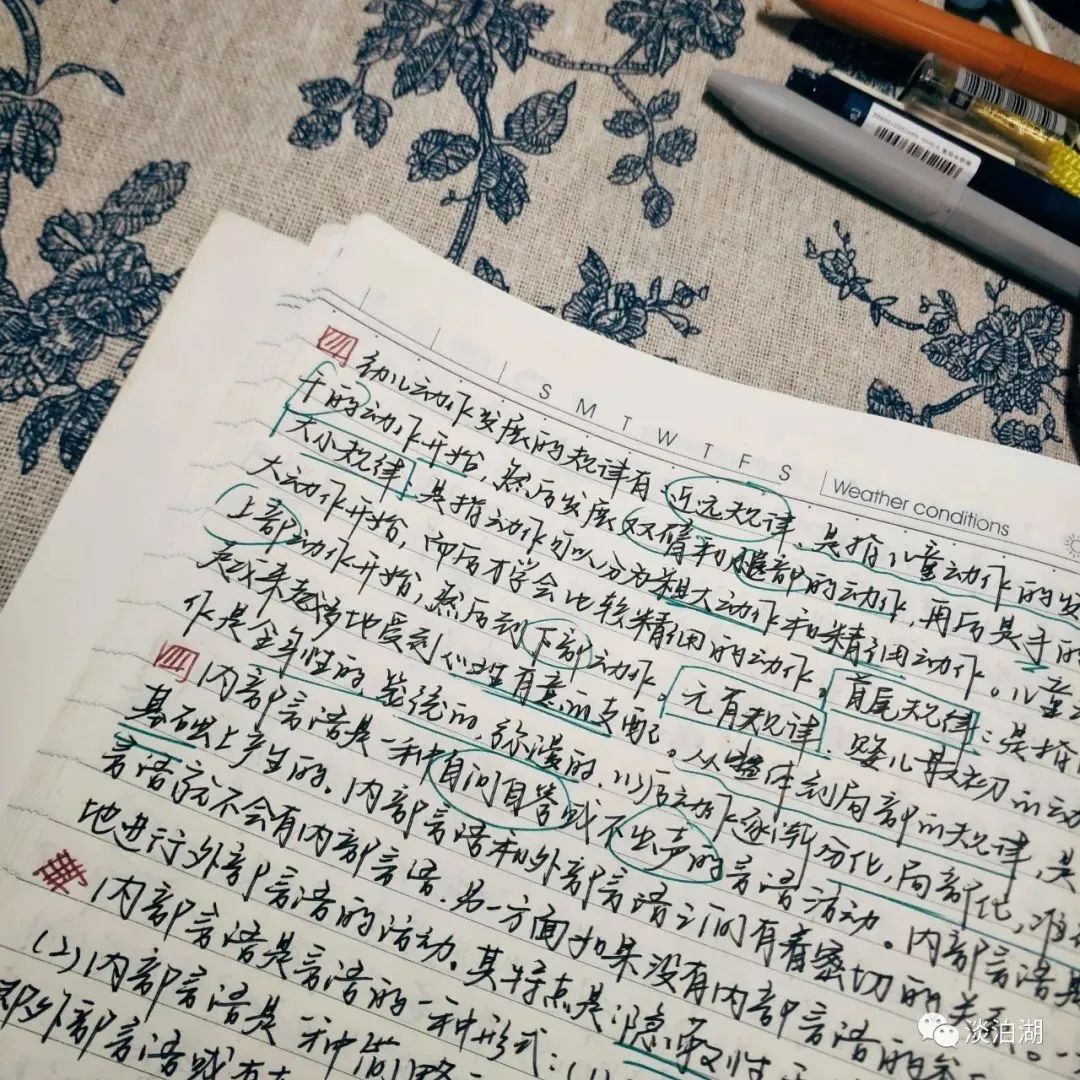 S M T W T F S Weather conditions
幼儿动作发展的规律有：近远规律，是指儿童动作的发
干的动作开始，然后发展双臂和腿部的动作，再后是手的
大小规律：是指动作可以分为粗大动作和精细动作。儿童
大动作开始，而后才学会比较精细的动作。首尾规律：是指
上部动作开始，然后到下部动作。无有规律
越来越多地受到心理有意的支配。从整体到局部的规律，是
作是全身性的、笼统的，弥漫的，以后动作逐渐分化，局部化，
内部言语是一种自问自答或不出声的言语活动。内部言语是
基础上产生的。内部言语和外部言语之间有着密切的关系。一
言语就不会有内部言语。另一方面如果没有内部言语的参
地进行外部言语的活动。其特点是：隐蔽性
内部言语是言语的一种形式：(1)
(2)内部言语是一种简略
即外部言语或
淡泊湖